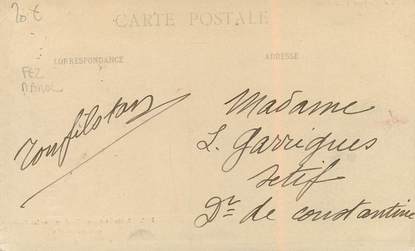 20 €
CARTE POSTALE
CORRESPONDANCE
ADRESSE
FEZ
MAROC
Ton fils
Madame
L. Garrigues
Setif
Dr de constantine